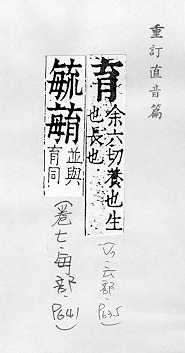 重訂直音篇
育 余六切養也生
也長也
部·P635)
毓 並與
育同
(卷七·每部·P641)